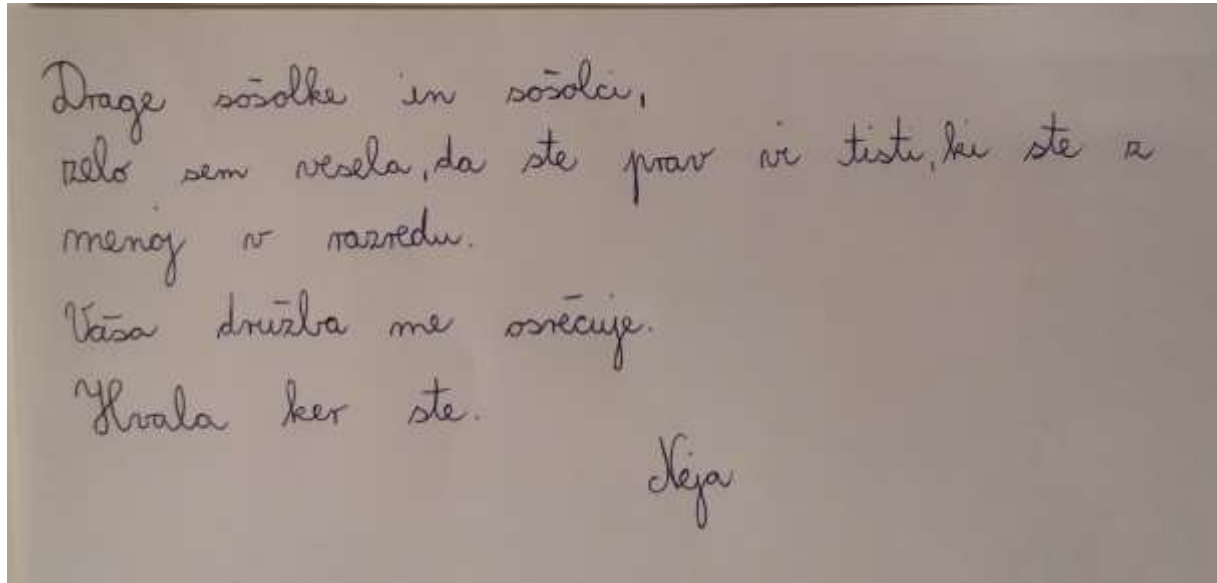 Drage sošolke in sošolci,
zelo sem vesela, da ste prav vi tisti, ki ste z
menoj v razredu.
Vaša družba me osrečuje.
Hvala ker ste.
Neja